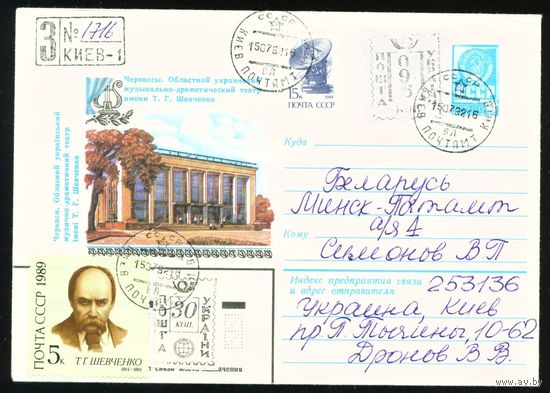 З № 1716
КИЕВ-1
СССР
КИЕВ ПОЧТАМТ
15К
ПОЧТА СССР
ПОШТА
УКРАЇНИ
Черкассы. Областной украинский
музыкально-драматический театр
имени Т. Г. Шевченко
Черкаси. Обласний український
музично-драматичний театр
імені Т. Г. Шевченка
Куда
Беларусь
Минск-Почтамт
а/я
Кому
Симонов ВП
Индекс предприятия связи
и адрес отправителя
253136
Украина, Киев
пр П. Тычины, 10-62
Дронов В В.
ПОЧТА СССР 1989
5к
Т.Г. ШЕВЧЕНКО
1814-1861
ПОШТА
УКРАЇНИ
30
КОП.
www.ay.by